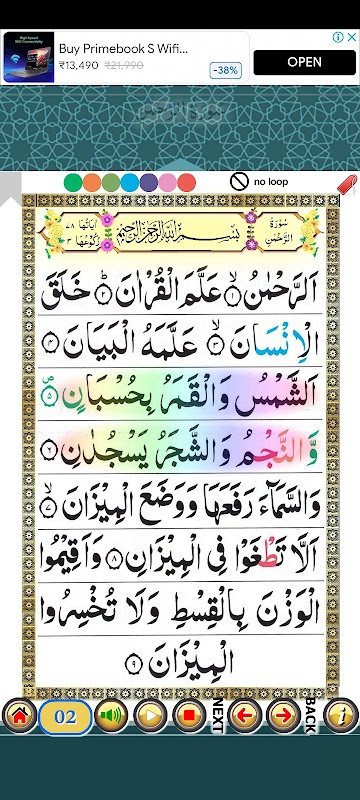 Buy Primebook S Wifi...
₹13,490 ₹21,990
-38%
OPEN
no loop
سُورَةُ الرَّحْمٰنِ
بِسْمِ اللّٰهِ الرَّحْمٰنِ الرَّحِيْمِ
اٰيَاتُهَا ٧٨
رُكُوْعُهَا ٣
اَلرَّحْمٰنُ ۙ﴿١﴾ عَلَّمَ الْقُرْاٰنَ ؕ﴿٢﴾ خَلَقَ
الْاِنْسَانَ ۙ﴿٣﴾ عَلَّمَهُ الْبَيَانَ ﴿٤﴾
اَلشَّمْسُ وَالْقَمَرُ بِحُسْبَانٍ ﴿٥﴾
وَّالنَّجْمُ وَالشَّجَرُ يَسْجُدٰنِ ﴿٦﴾
وَالسَّمَآءَ رَفَعَهَا وَوَضَعَ الْمِيْزَانَ ۙ﴿٧﴾
اَلَّا تَطْغَوْا فِى الْمِيْزَانِ ﴿٨﴾ وَاَقِيْمُوا
الْوَزْنَ بِالْقِسْطِ وَلَا تُخْسِرُوا
الْمِيْزَانَ ﴿٩﴾
02
NEXT
BACK